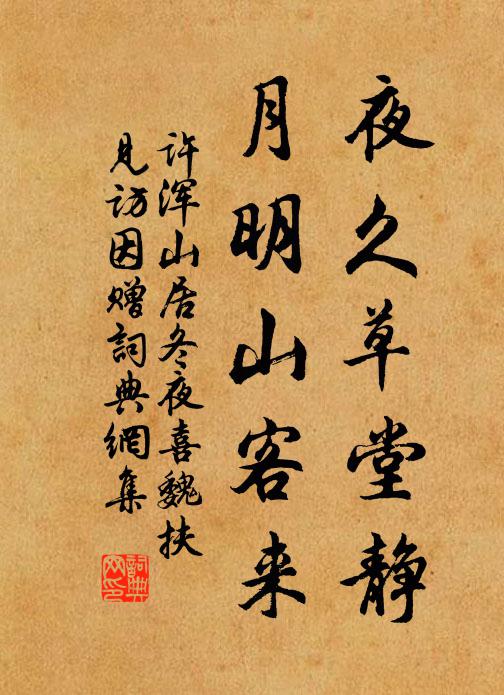 夜久草堂静
月明山客来
许浑山居冬夜喜魏扶
见访因赠词典網集
詞典
网印